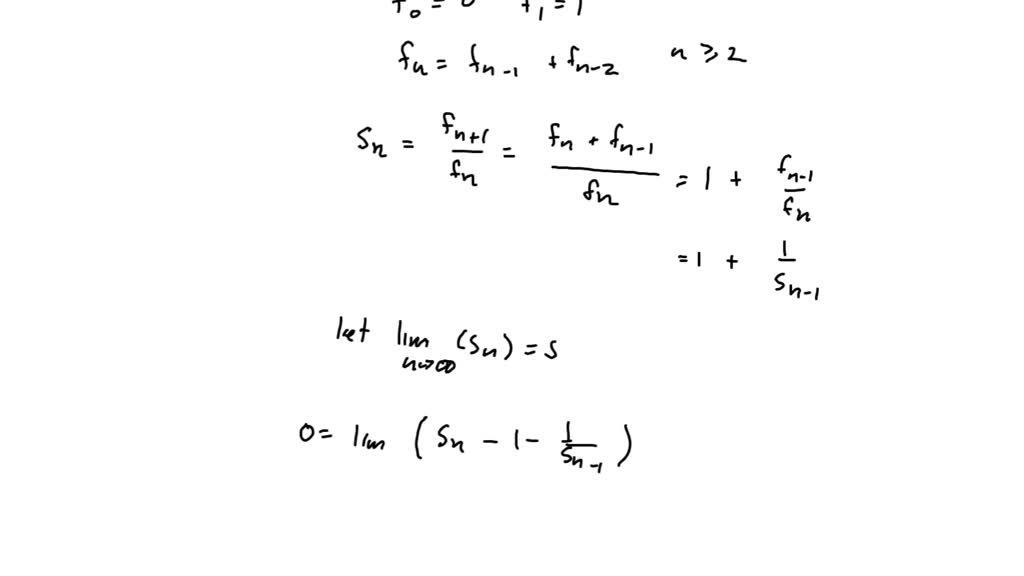 f₀ = 0 f₁ = 1
fₙ = fₙ₋₁ + fₙ₋₂ n ≥ 2
Sₙ = fₙ₊₁/fₙ = (fₙ + fₙ₋₁)/fₙ = 1 + fₙ₋₁/fₙ
= 1 + 1/Sₙ₋₁
let lim n→∞ (Sₙ) = S
0 = lim (Sₙ - 1 - 1/Sₙ₋₁)